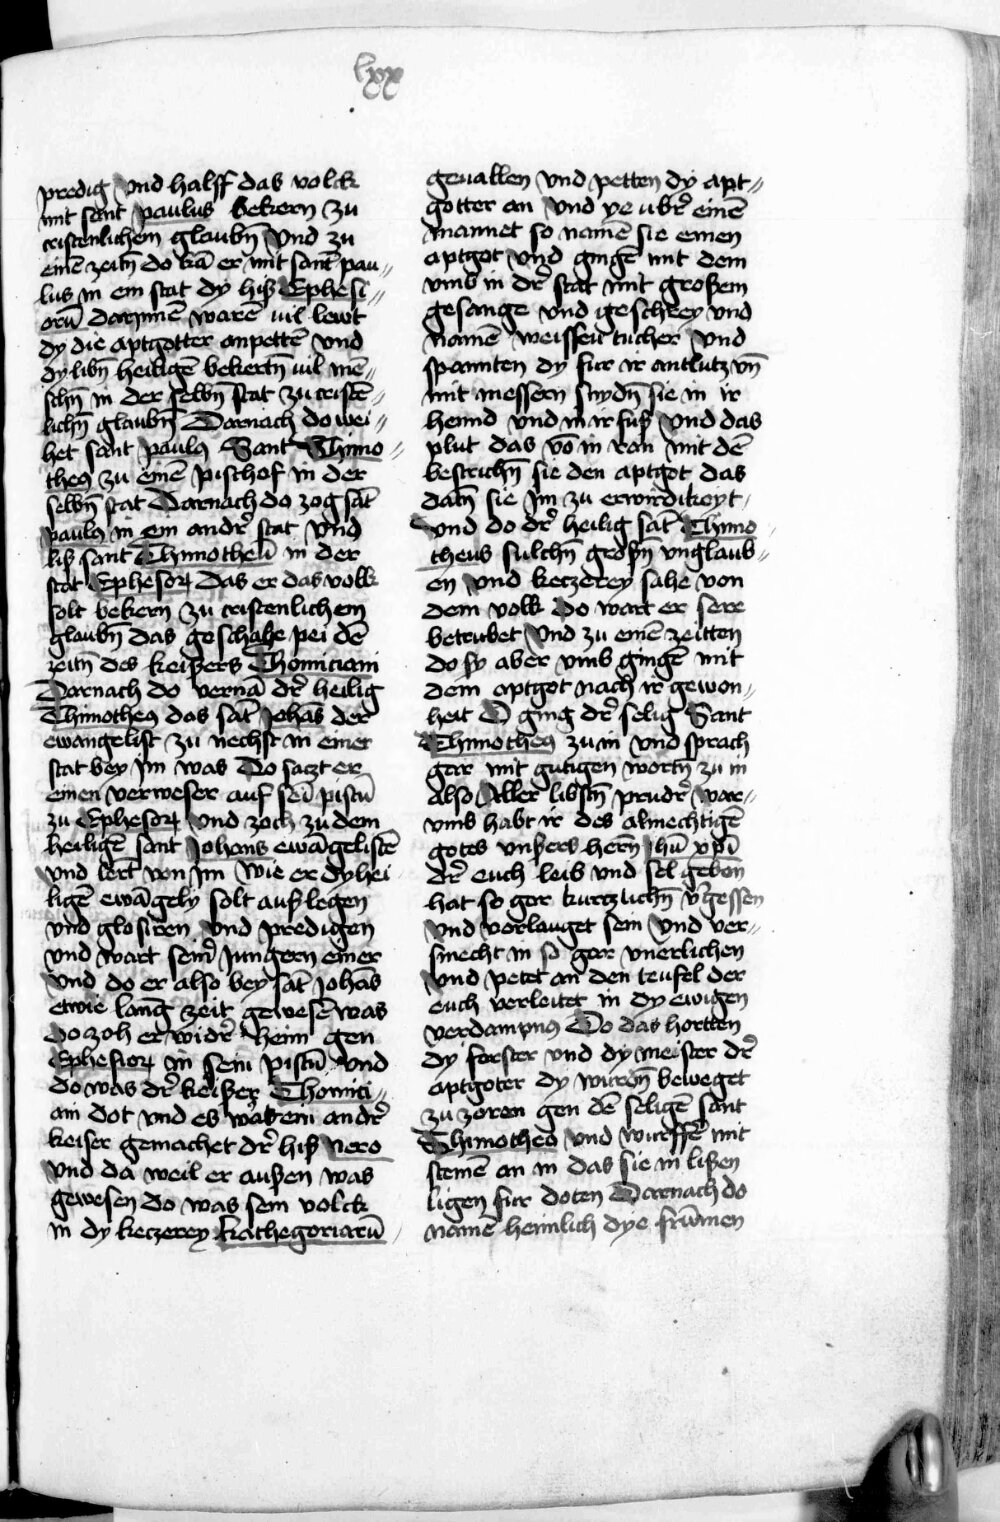 lxx
predig vnd halff das volck
mit sant paulus bekern zu
cristenlichem glaubn̄ Vnd zu
einē zeitn̄ do kā er mit sant pau〃
lus in ein stat dy hiß Ephesi〃
orū darjnnen warē vil lewt
dy die aptgotter anpettē vnd
dy libn̄ heiligē bekertn̄ vil mē〃
schn̄ in der selbn̄ stat zu cristē〃
lichn̄ glaubn̄ Darnach do wei〃
het sant paulꝯ Sant Thimo〃
theꝯ zu einē pischof in der
selbn̄ stat Darnach do zog sāt
paulꝯ in ein andr̄ stat Vnd
liß sant Thimotheū in der
stat Ephesoꝝ Das er das volk
solt bekern zu cristenlichem
glaubn̄ das geschahe pei dē
zeitn̄ des keißers Thomiciani
Darnach do vernā dr̄ heilig
Thimotheꝯ das sāt johās der
ewangelist zu nechst in einer
stat bey jm was Do saczt er
einen verweser auf sei pistū
zu Ephesoꝝ Vnd zoch zu dem
heiligē sant johans ewāgelistē
vnd lert von jm Wie er dy hei
ligē ewāgely solt auß legen
vnd glosiren vnd predigen
vnd wart seinr̄ jungern einer
Vnd do er also bey sāt johās
etwie lang zeit gewesē was
do zoh er widr̄ heim gen
Ephesioꝝ in sein pistū Vnd
do was dr̄ keißer Thomici〃
ain dot vnd es ware ein andr̄
keiser gemachet dr̄ hiß Nero
Vnd da weil er außen was
gewesen do was sein volck
in dy keczerey kathegoriarū
geuallen Vnd petten dy apt〃
gotter an Vnd ye ubr̄ einē
mannet so namē sie einen
aptgot Vnd gingē mit dem
vmb in dr̄ stat mit großem
gesange Vnd igeschrey vnd
namē weissen tucher Vnd
spannten dy fur ir antlutz vn̄
mit messern snydn̄ sie in ir
hennd Vnd in ir fuß Vnd das
plut das vō in ran mit dē
bestrichn̄ sie den aptgot das
datn̄ sie jm zu erwirdikeyt
Vnd do dr̄ heilig sāt Thimo
theus sulchn̄ großn̄ vnglaub〃
en Vnd keczerey sahe von
dem volk Do wart er sere
betrubet Vnd zu einē zeitten
do sy aber vmb gingē mit
dem aptgot nach ir gewon〃
heit D ging dr̄ selig Sant
Thimotheꝯ zu in Vnd sprach
gar mit gutigen wortn̄ zu in
also Aller libstn̄ prudr̄ war〃
vmb habt ir des almechtigē
gotes vnßers hern̄ jhū xp̄i
dr̄ euch leib vnd sel geben
hat so gar kurczlichn̄ v̄gessen
vnd verlauget sein Vnd ver〃
smecht in so gar vnerlichen
Vnd petet an den teufel der
euch verleitet in dy ewigen
verdampnꝯ Do das hortten
dy forster vnd dy meister dr̄
aptgoter dy wurdn̄ beweget
zu zoren gen dē seligē sant
Thimotheꝯ Vnd wurffē mit
steinē an in das sie in lißen
ligen fur doten Darnach do
namē heimlich dye frūmen